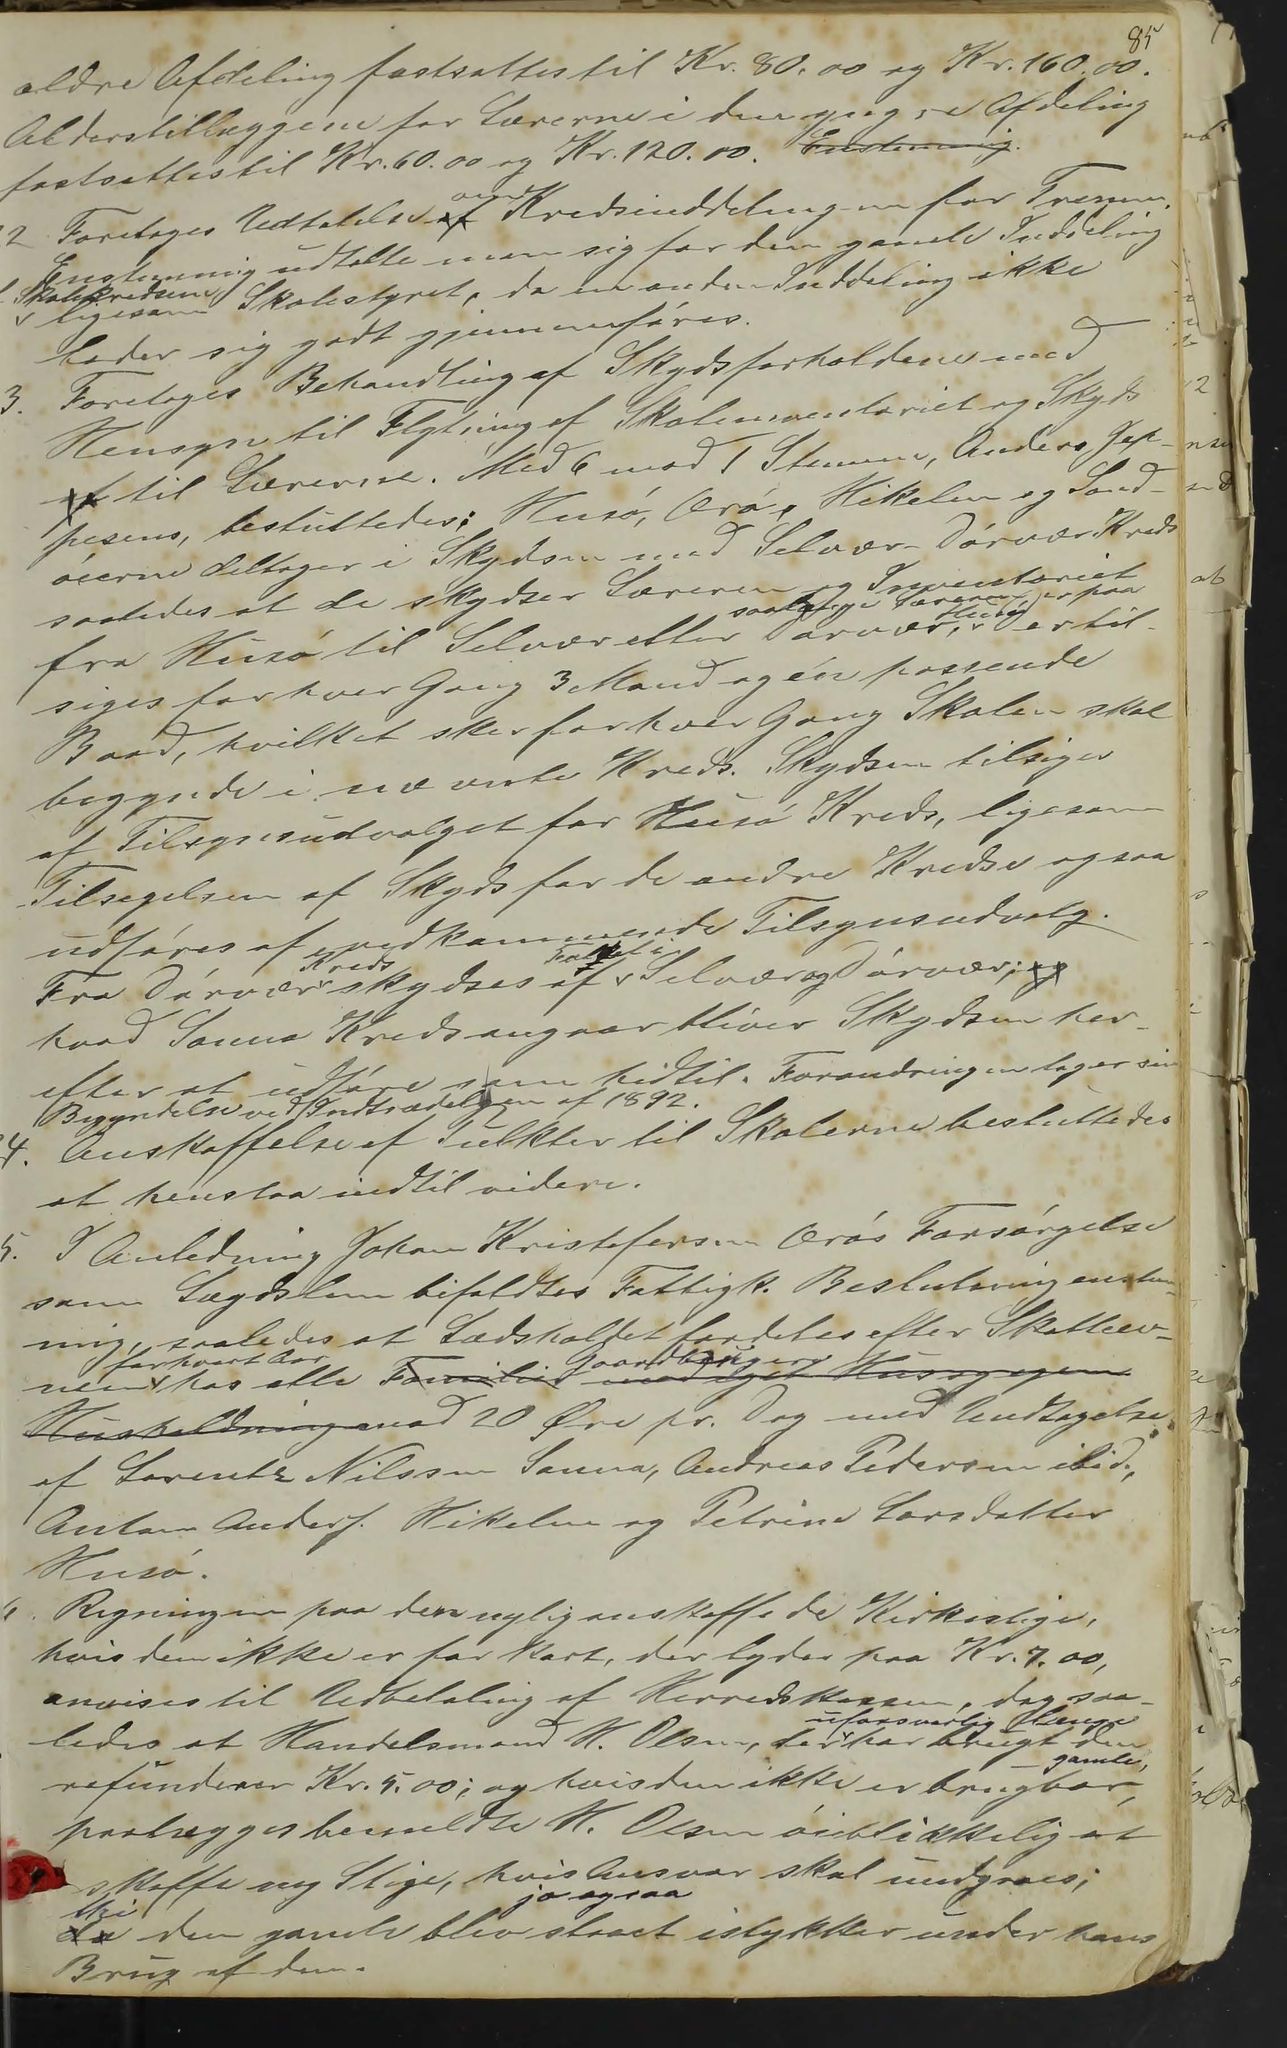 85
ældre Afdeling fastsattes til Kr. 80.00 og Kr. 160.00.
Alderstillæggene for Lærerne i den yngre Afdeling
fastsattes til Kr. 60.00 og Kr. 120.00. Enstemmig.
2 Foretoges Udtalelse af om Kredsinddelingen for Trenen.
Enstemmig udtalte man sig for den gamle Inddeling
Skolekredsen ligesom Skolestyret, da en anden Inddeling ikke
lader sig godt gjennemføres.
3. Foretoges Behandling af Skydsforholdene med
Hensyn til Flytning af Skoleinventariet og Skyds
af til Lærerne. Med 6 mod 1 Stemme, Anders Jep-
pesens, besluttedes: Husø,Ærø, Hikelen og Sand-
øierne deltager i Skydsen med Selvær-Dørvær Kreds
saaledes at de skydser Læreren og Inventariet
saalænge Læreren er paa Husø
fra Husø til Selvær eller Dørvær, der til-
siges for hver Gang 3 Mand og én passende
Baad, hvilket sker for hver Gang Skolen skal
begynde i nævnte Kreds. Skydsen tilsiges
af Tilsynsudvalget for Husø Kreds, ligesom
Tilsigelsen af Skyds for de andre Kredse ogsaa
udføres af vedkommende Tilsynsudvalg.
Kreds Folket i
Fra Dørvær skydses af Selvær og Dørvær; og
hvad Sanna Kreds angaar bliver Skydsen her-
efter at udføre som hidtil. Forandringen tager sin
Begyndelse ved Indtrædelsen af 1892.
4. Anskaffelse af Pulkter til Skolerne besluttedes
at henstaa indtil videre.
5. I Anledning Johan Kristofersen Ærøs Forsørgelse
som Lægdslem bifaldtes Fattigk. Beslutning enstem-
mig, saaledes at Lædsholdet fordeles efter Skatteev-
for hvert Aar Gaardbrugere
nen hos alle Familier med eget Hus og egen
Husholdning mod 20 Øre pr. Dag med Undtagelse
af Lorentz Nilssen Sanna, Andreas Pedersen ibid.,
Anton Anders. Hikelen og Petrine Larsdatter
Husø.
6. Regningen paa den nylig anskaffede Kirkestige,
hvis den ikke er for kort, der lyder paa Kr. 7.00,
anvises til Udbetaling af Herredskassen, dog saa-
uforsvarlig længe
ledes at Handelsmand H. Olsen, der har brugt den
gamle,
refunderer Kr. 5.00; og hvis den ikke er brugbar,
paalægges bemeldte H. Olsen øieblikkelig at
skaffe ny Stige, hvis Ansvar skal undgaaes;
thi jo ogsaa
da den gamle blev slaaet istykker under hans
Brug af den.